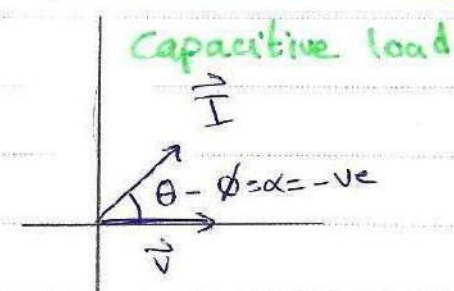 Capacitive load
I
θ - φ = α = -ve
V